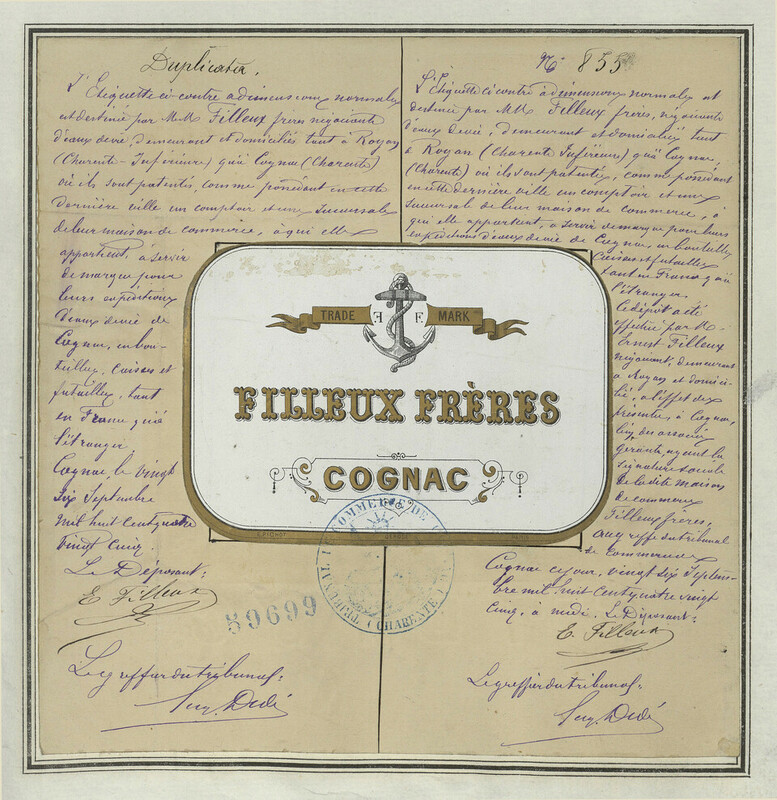 Duplicata.
L'Etiquette ci-contre a dimensions normales
est destinée par M.M. Filleux frères négociants
d'eaux de vie, demeurant et domiciliés tant à Royan
(Charente-Inférieure) qu'à Cognac (Charente)
où ils sont patentés, comme possédant en cette
dernière ville un comptoir et une succursale
de leur maison de commerce, à qui elle
appartient, a servir
de marque pour
leurs expéditions
d'eaux de vie de
Cognac, en bou-
teilles, caisses et
futailles, tant
en France qu'à
l'étranger
Cognac, le vingt
six Septembre
mil huit cent quatre
vingt cinq.
Le Déposant:
E. Filleux
Le greffier du tribunal:
Eug. Dedé
No 855
L'Etiquette ci contre à dimensions normales est
destinée par MM. Filleux frères, négociants
d'eaux de vie, demeurant et domiciliés tant
à Royan (Charente Inférieure) qu'à Cognac,
(Charente) où ils sont patentés, comme possédant
en cette dernière ville un comptoir et une
succursale de leur maison de commerce, à
qui elle appartient, a servir de marque pour leurs
expéditions d'eaux de vie de Cognac, en bouteilles
caisses et futailles
tant en France qu'à
l'étranger.
Le dépôt a été
effectué par M.
Ernest Filleux
négociant, demeurant
à Royan et domici-
lié, à l'effet des
présentes, à Cognac,
l'un des associés
gérants, ayant la
signature sociale
de la dite maison
de commerce
Filleux frères,
au greffe du tribunal
de Commerce
Cognac ce jour, vingt six Septem-
bre mil huit cent quatre vingt
cinq, à midi. Le Déposant:
E. Filleux
Le greffier du tribunal:
Eug. Dedé
TRADE F F MARK
FILLEUX FRÈRES
COGNAC
TRIBUNAL DE COMMERCE DE
(CHARENTE)
59699